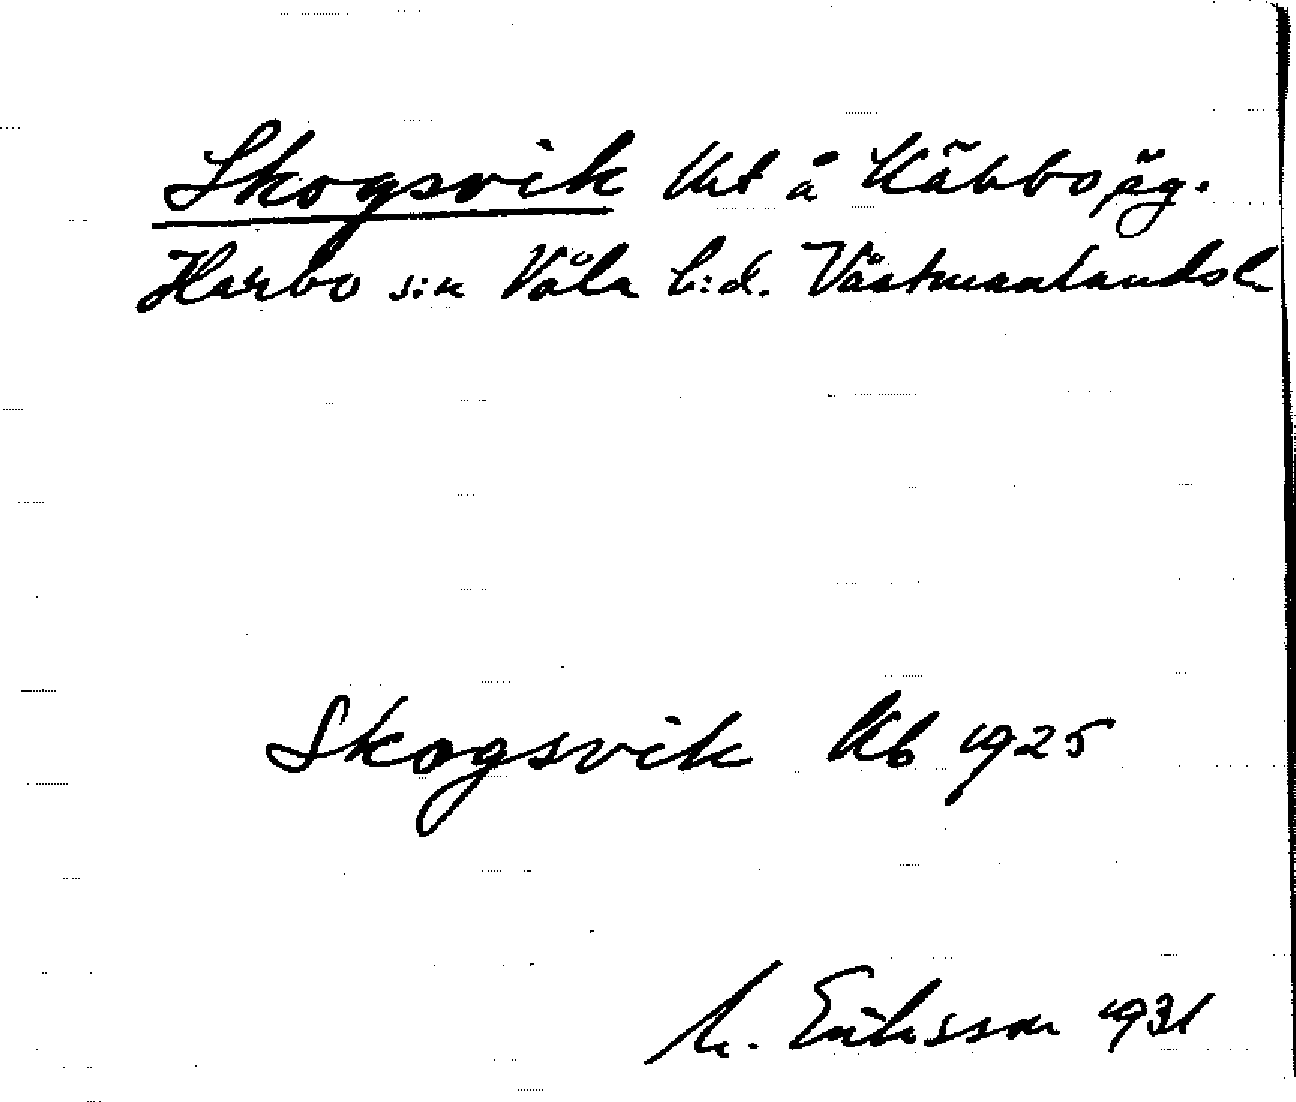 Skogsvik lht å Käbbo äg.
Harbo s:n Våla h:d. Västmanlands l.
Skogsvik Kb 1925
M. Eriksson 1931